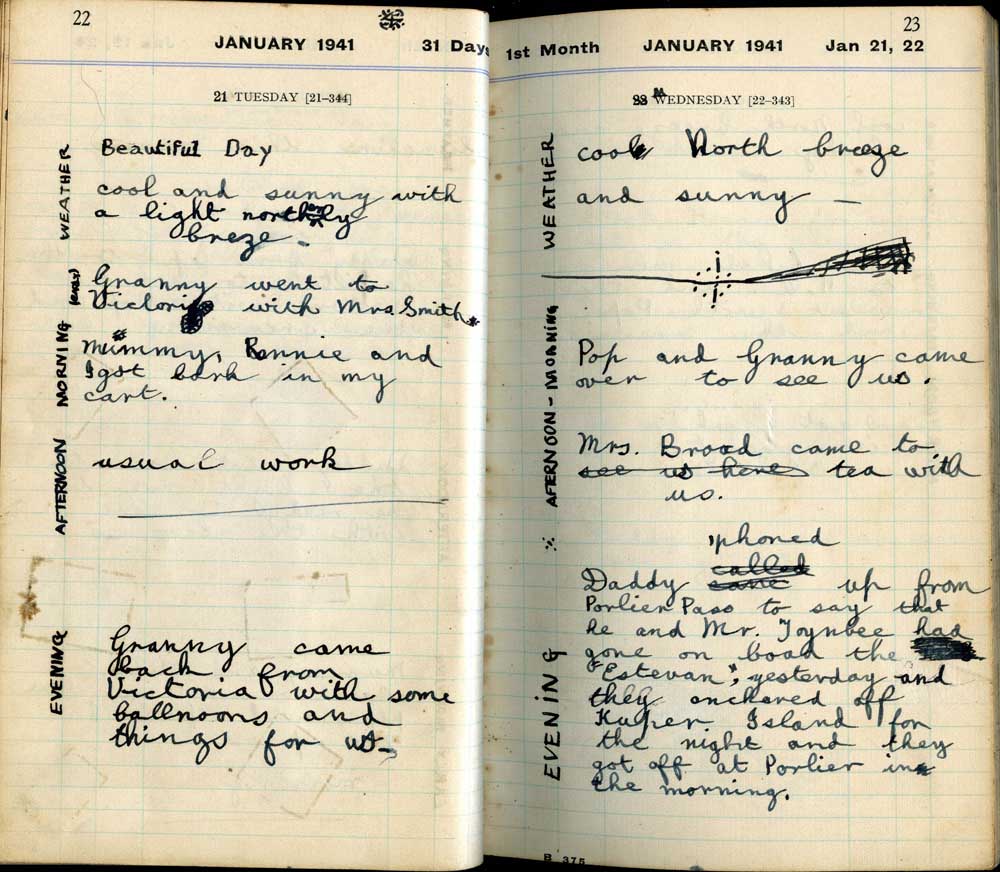 22
JANUARY 1941 31 Days
21 TUESDAY [21–344]
WEATHER
Beautiful Day
cool and sunny with
a light northerly
breze -
MORNING (early)
Granny went to
Victoria with Mrs Smith
Mummy, Rennie and
I got bark in my
cart.
AFTERNOON
usual work
EVENING
Granny came
back from
Victoria with some
ballnoons and
things for us
23
1st Month JANUARY 1941 Jan 21, 22
22 WEDNESDAY [22–343]
WEATHER
cool North breeze
and sunny -
AFERNOON - MORNING
Pop and Granny came
over to see us.
Mrs. Broad came to
see us here tea with
us.
phoned
called
EVENING
Daddy came up from
Porlier Pass to say that
he and Mr. Toynbee had
gone on boad the
"Estevan", yesterday and
they anchored off
Kuper Island for
the night and they
got off at Porlier in
the morning.
B 375